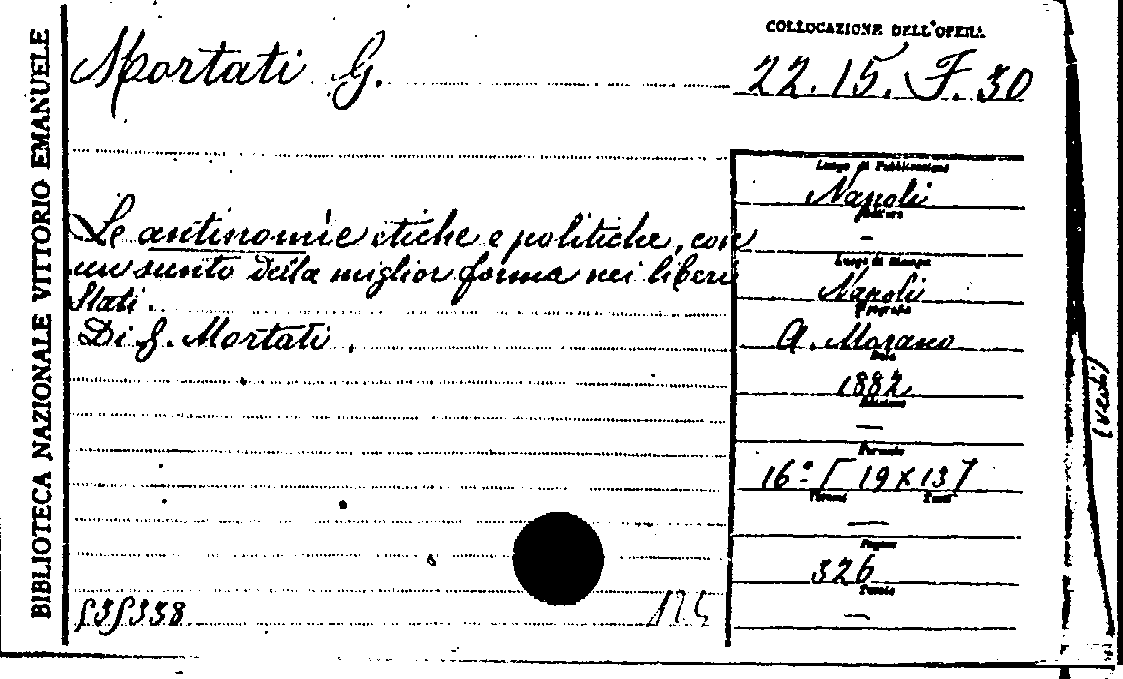 BIBLIOTECA NAZIONALE VITTORIO EMANUELE
COLLOCAZIONE DELL'OPERA
Mortati G.
22.15.F.30
Le antinomie etiche e politiche, con
un sunto della miglior forma nei liberi
Stati.
Di G. Mortati.
Luogo di Pubblicazione
Napoli
Editore
—
Luogo di Stampa
Napoli
Tipografo
A. Morano
Data
1882
Edizione
—
Formato
16º [19 x 13]
Volumi Tomi
—
Pagine
326
Tavole
—
(vedi)